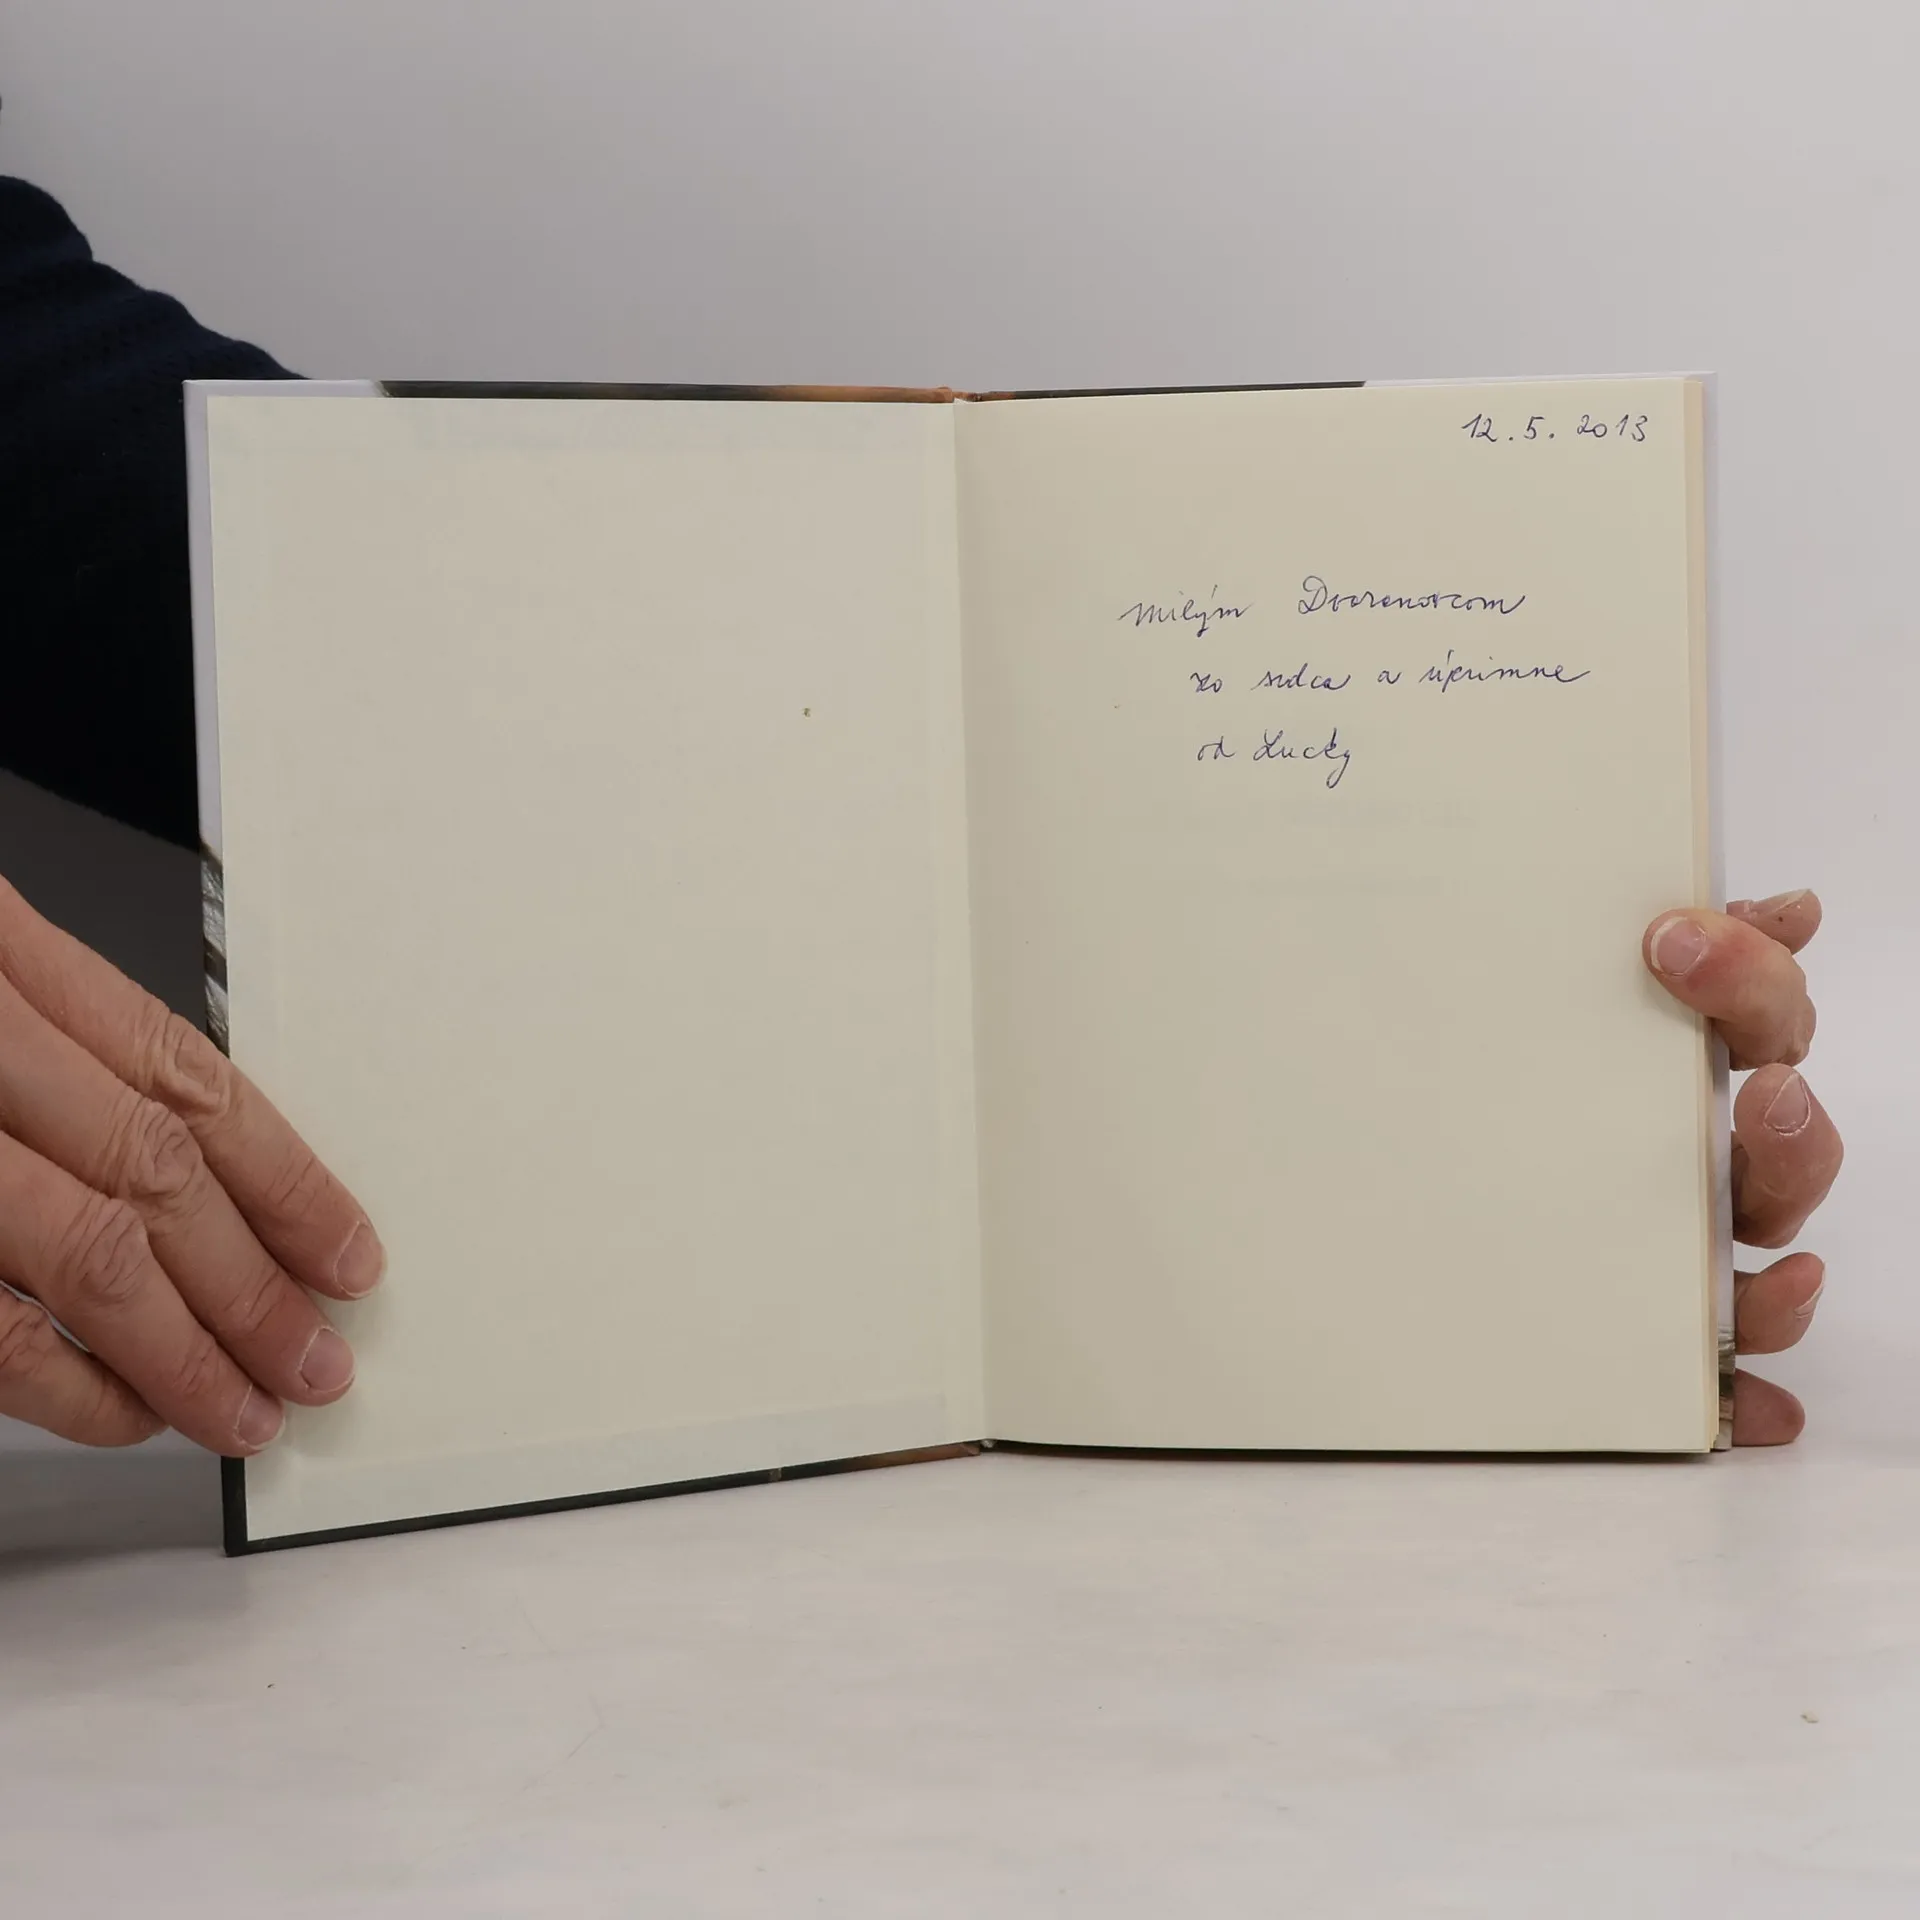 12.5.2013
Milým
zo srdca a úprimne
od Lucky